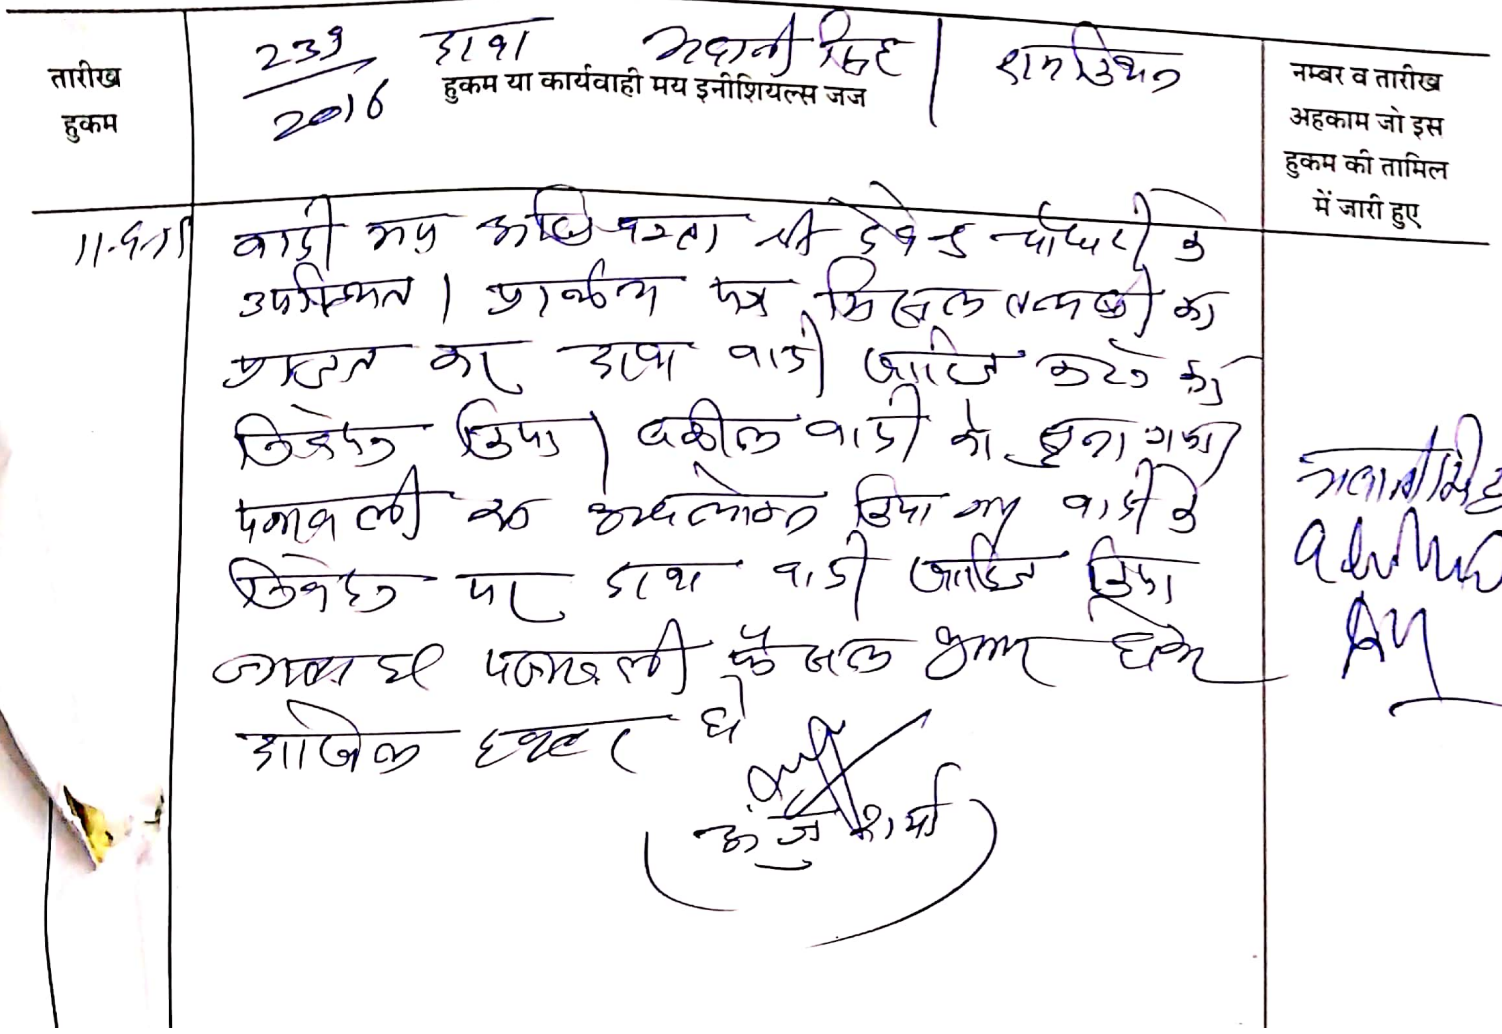 239/2016 दावा भवानी सिंह / रामकिशन
तारीख
हुकम
हुकम या कार्यवाही मय इनीशियल्स जज
नम्बर व तारीख
अहकाम जो इस
हुकम की तामिल
में जारी हुए
वादी मय अधिवक्ता श्री देवेन्द्र चौधरी के
उपस्थित। प्रार्थना पत्र मिसल तलबी का
प्रस्तुत कर दावा वादी खारिज करने का
निवेदन किया। वकील वादी को सुना गया
पत्रावली का अवलोकन किया गया वादी के
निवेदन पर दावा वादी खारिज किया
जाता है पत्रावली फैसल शुमार होकर
दाखिल दफ्तर हो
(अंजु शर्मा)
भवानी सिंह